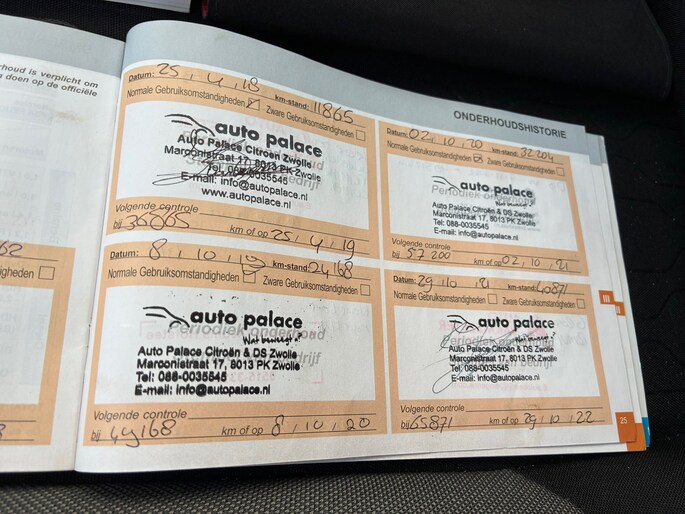 rhoud is verplicht om
n doen op de officiële
62
gheden
ONDERHOUDSHISTORIE
Datum: 25 , 4 , 18 km-stand: 11865
Normale Gebruiksomstandigheden Zware Gebruiksomstandigheden
auto palace
Auto Palace Citroën Zwolle
Marconistraat 17, 8013 PK Zwolle
E-mail: info@autopalace.nl
www.autopalace.nl
Volgende controle
bij 36865 km of op 25 , 4 , 19
Datum: 8 , 10 , 19 km-stand: 24168
Normale Gebruiksomstandigheden Zware Gebruiksomstandigheden
auto palace
Periodiek onderhoud
Wat beweegt?
Auto Palace Citroën & DS Zwolle
Marconistraat 17, 8013 PK Zwolle
Tel: 088-0035545
E-mail: info@autopalace.nl
Volgende controle
bij 49168 km of op 8 , 10 , 20
Datum: 02 , 10 , 20 km-stand: 32204
Normale Gebruiksomstandigheden Zware Gebruiksomstandigheden
auto palace
Periodiek onderhoud
Wat beweegt?
Auto Palace Citroën & DS Zwolle
Marconistraat 17, 8013 PK Zwolle
Tel: 088-0035545
E-mail: info@autopalace.nl
Volgende controle
bij 57200 km of op 02 , 10 , 21
Datum: 29 , 10 , 21 km-stand: 40871
Normale Gebruiksomstandigheden Zware Gebruiksomstandigheden
auto palace
Periodiek onderhoud
Wat beweegt?
Auto Palace Citroën & DS Zwolle
Marconistraat 17, 8013 PK Zwolle
Tel: 088-0035545
E-mail: info@autopalace.nl
Volgende controle
bij 65871 km of op 29 , 10 , 22
III
II
25